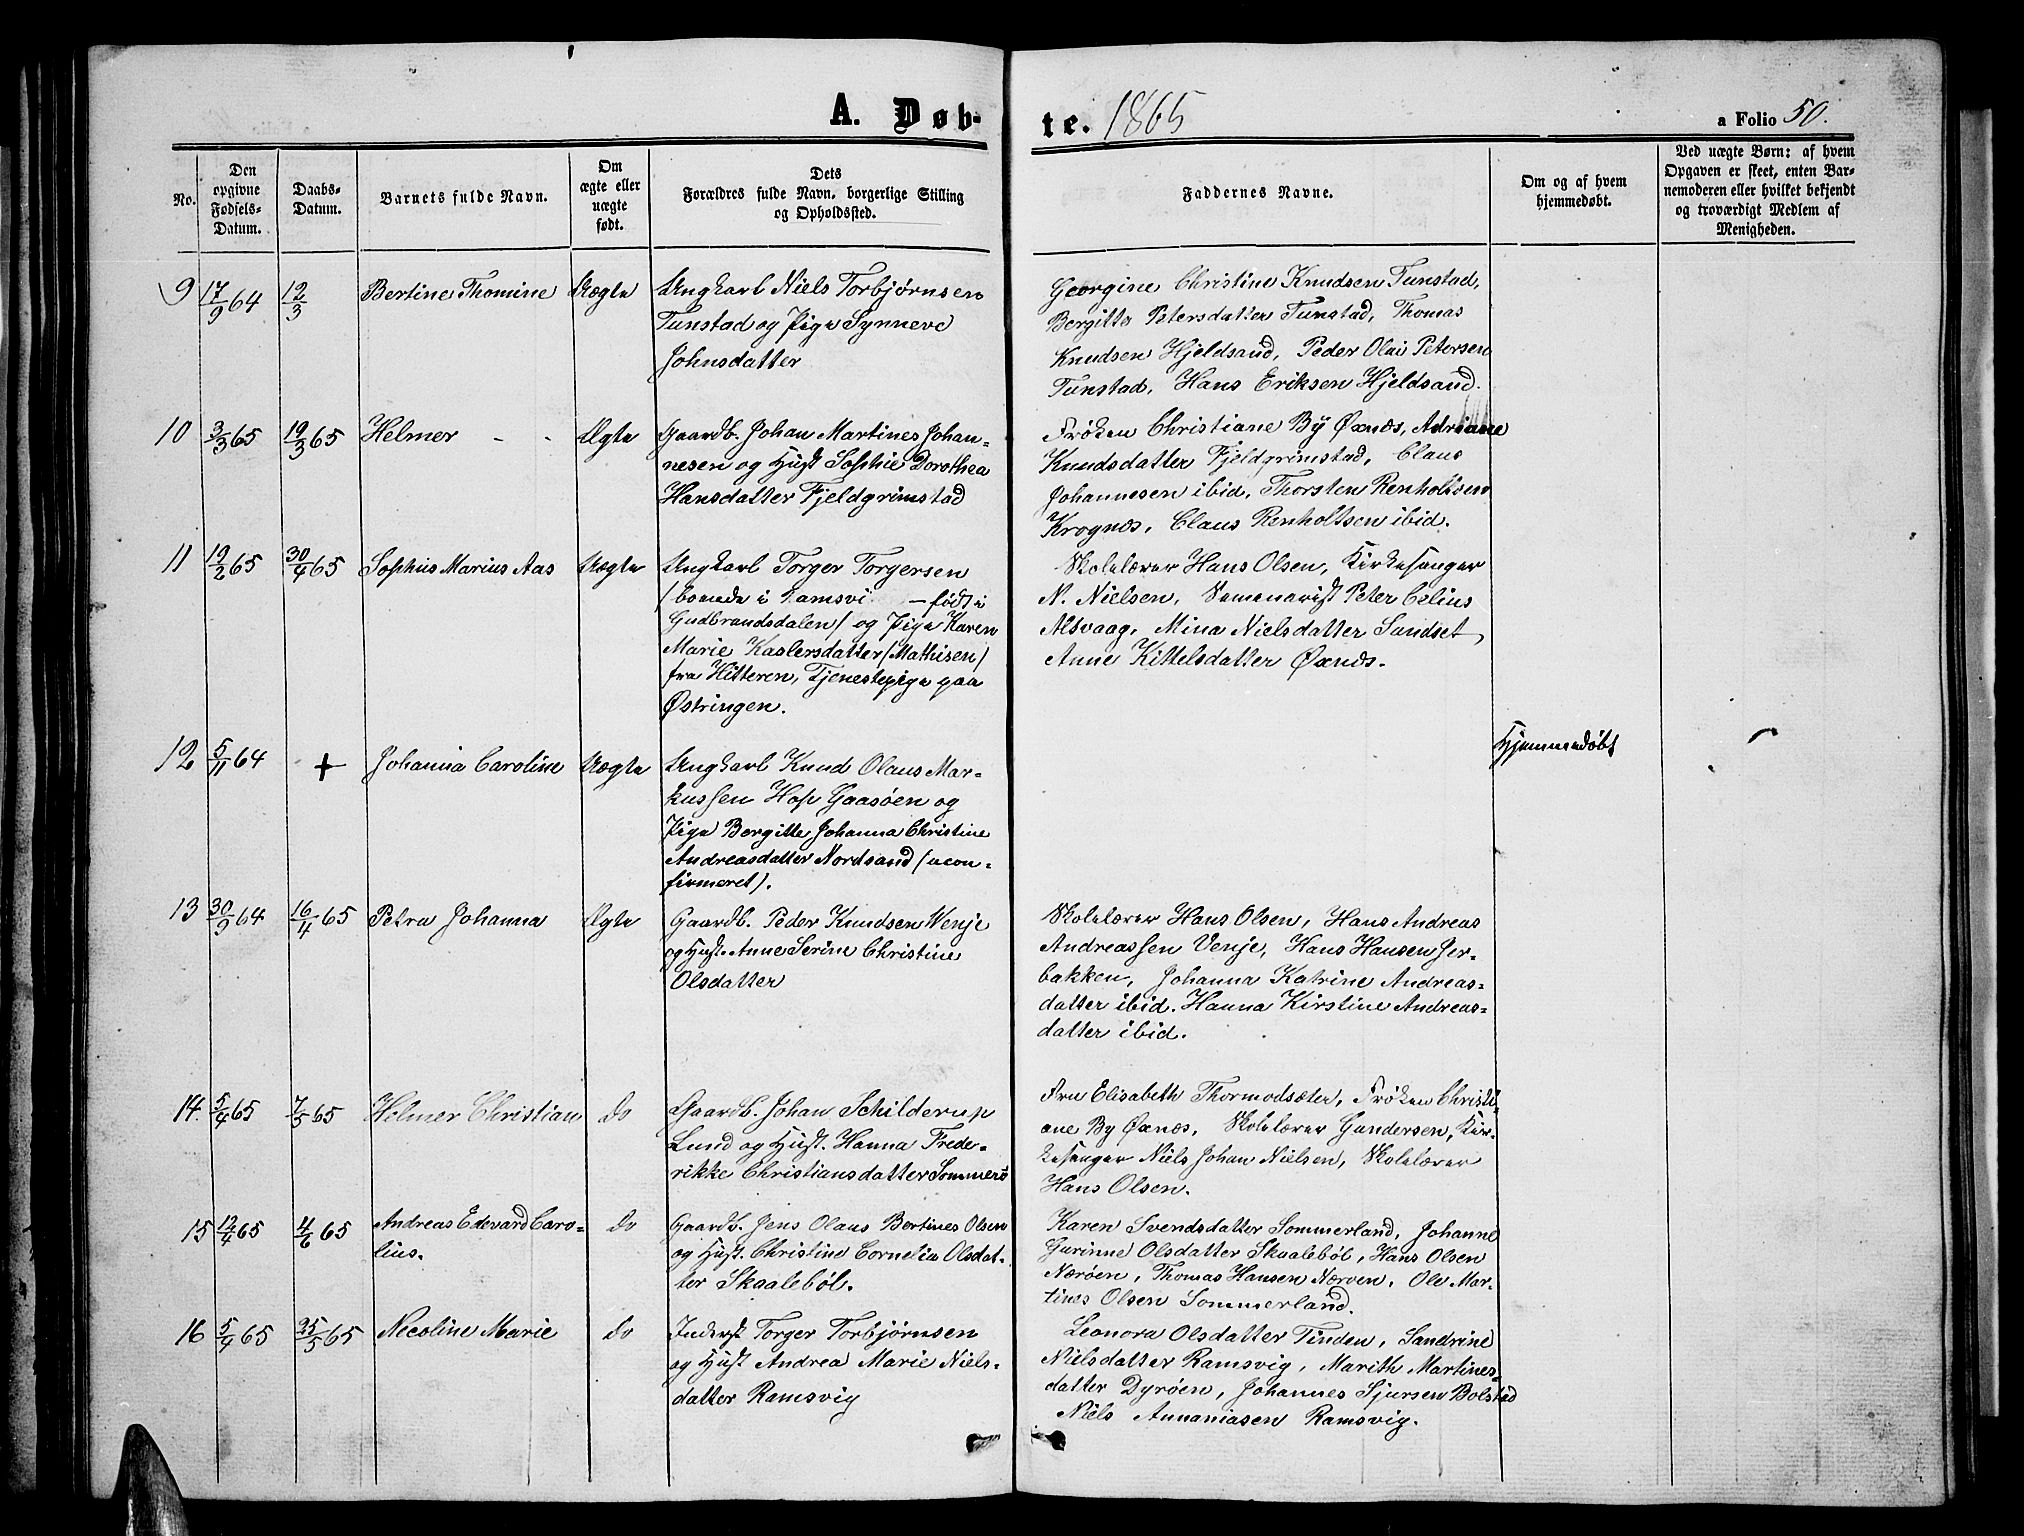 A. Døb-
te. 1865
a Folio 50.
No.
Den
opgivne
Fødsels-
Datum.
Daabs-
Datum.
Barnets fulde Navn.
Om
ægte eller
uægte
født.
Dets
Forældres fulde Navn, borgerlige Stilling
og Opholdssted.
Faddernes Navne.
Om og af hvem
hjemmedøbt.
Ved uægte Børn: af hvem
Opgaven er skeet, enten Bar-
nemoderen eller hvilket bekjendt
og troværdigt Medlem af
Menigheden.
9 17/9 64 12/3 Bertine Thomine Uægte
Ungkarl Niels Torbjørnsen
Tunstad og Pige Synneve
Johnsdatter
Georgine Christine Knudsen Tunstad,
Bergitte Petersdatter Tunstad, Thomas
Knudsen Hjeldsand, Peder Olai Petersen
Tunstad, Hans Eriksen Hjeldsand.
10 3/3 65 19/3 65 Helmer - - Ægte
Gaardb. Johan Martines Johan-
nesen og Hust Sophie Dorothea
Hansdatter Fjeldgrimstad
Frøken Christiane By Øxnæs, Adriane
Knudsdatter Fjeldgrimstad, Claus
Johannesen ibid, Thorsten Renholtsen
Krognæs, Claus Renholtsen ibid.
11 19/2 65 30/4 65 Sophus Marius Aas Uægte
Ungkarl Torger Torgersen
(boende i Ramsvi - født i
Gudbrandsdalen) og Pige Karen
Marie Kaslersdatter (Mathisen)
fra Hitteren, Tjenestepige paa
Østringen.
Skolelærer Hans Olsen, Kirkesanger
N. Nielsen, Semenarist Peter Celius
Alsvaag, Mina Nielsdatter Sandset,
Anne Kittelsdatter Øxnæs.
12 5/11 64 + Johanna Caroline Uægte
Ungkarl Knud Olaus Mar-
kussen Hop Gaasøen og
Pige Bergitte Johanna Christine
Andreasdatter Nordsand (ucon-
firmeret).
Hjemmedøbt
13 30/9 64 16/4 65 Petra Johanna Ægte
Gaardb. Peder Knudsen Wenje
og Hust. Anne Serine Christine
Olsdatter
Skolelærer Hans Olsen, Hans Andreas
Andreassen Venje, Hans Hansen Jer-
bakken, Johanna Katrine Andreas-
datter ibid. Hanna Kirstine Andreas-
datter ibid.
14. 5/4 65 7/5 65 Helmer Christian do
Gaardb. Johan Schilderup
Lund og Hust. Hanna Frede-
rikke Christiansdatter Sommerö
Fru Elisabeth Thormodsæter, Frøken Christi-
ane By Øxnæs, Skolelærer Gundersen, Kir-
kesanger Niels Johan Nielsen, Skolelærer
Hans Olsen.
15 12/4 65 4/6 65 Andreas Edevard Caro-
lius. do
Gaardb. Jens Olaus Bertines Olsen
og Hust. Christine Cornelia Olsdat-
ter Skaalebøl.
Karen Svendsdatter Sommerland, Johanne
Gurinne Olsdatter Skaalebøl, Hans Olsen
Nærøen, Thomas Hansen Nærøen, Ole Mar-
tines Olsen Sommerland.
16 5/4 65 25/5 65 Necoline Marie do
Inderst Torger Torbjørnsen
og Hust Andrea Marie Niels-
datter Ramsvig
Leonora Olsdatter Tinden, Sandrine
Nielsdatter Ramsvig, Marith Martines-
datter Dyrøen, Johannes Sjursen Bolstad
Niels Annaniasen Ramsvig.